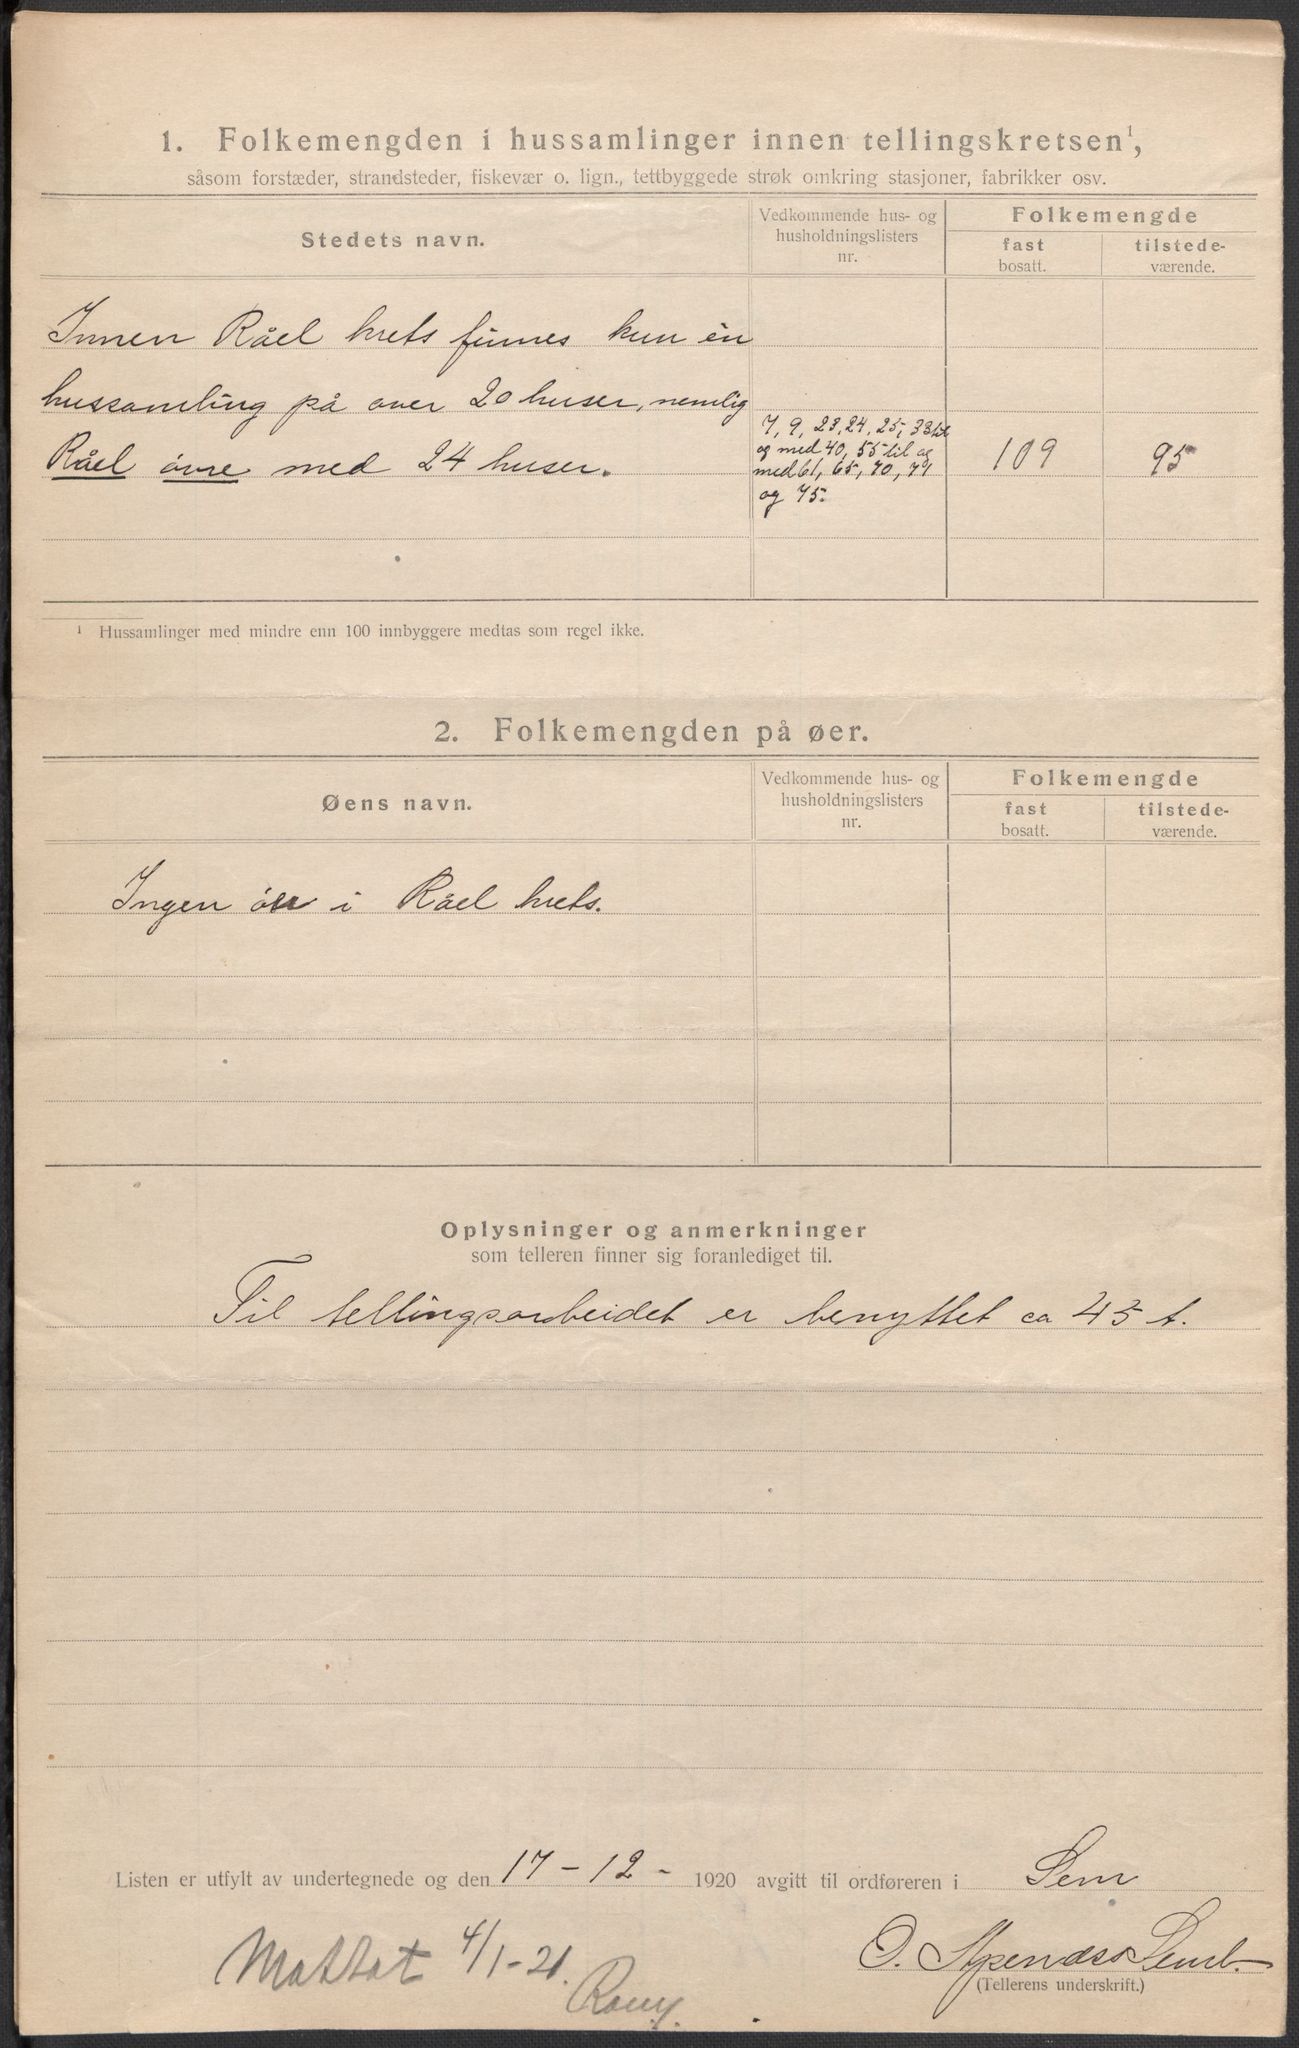 1. Folkemengden i hussamlinger innen tellingskretsen¹,
såsom forstæder, strandsteder, fiskevær o. lign., tettbyggede strøk omkring stasjoner, fabrikker osv.
Stedets navn.
Vedkommende hus- og
husholdningslisters
nr.
Folkemengde
fast
bosatt.
tilstede-
værende.
Innen Råel krets finnes kun én
hussamling på over 20 huser, nemlig
Råel øvre med 24 huser.
7, 9, 23, 24, 25, 33 til
og med 40, 55 til og
med 61, 65, 70, 71
og 75.
109
95
¹ Hussamlinger med mindre enn 100 innbyggere medtas som regel ikke.
2. Folkemengden på øer.
Øens navn.
Vedkommende hus- og
husholdningslisters
nr.
Folkemengde
fast
bosatt.
tilstede-
værende.
Ingen i Råel krets.
Oplysninger og anmerkninger
som telleren finner sig foranlediget til.
Til tellingsarbeidet er benyttet ca 45 t.
Listen er utfylt av undertegnede og den 17 - 12 - 1920 avgitt til ordføreren i Sem
O.
(Tellerens underskrift.)
Mottat 4/1-21.